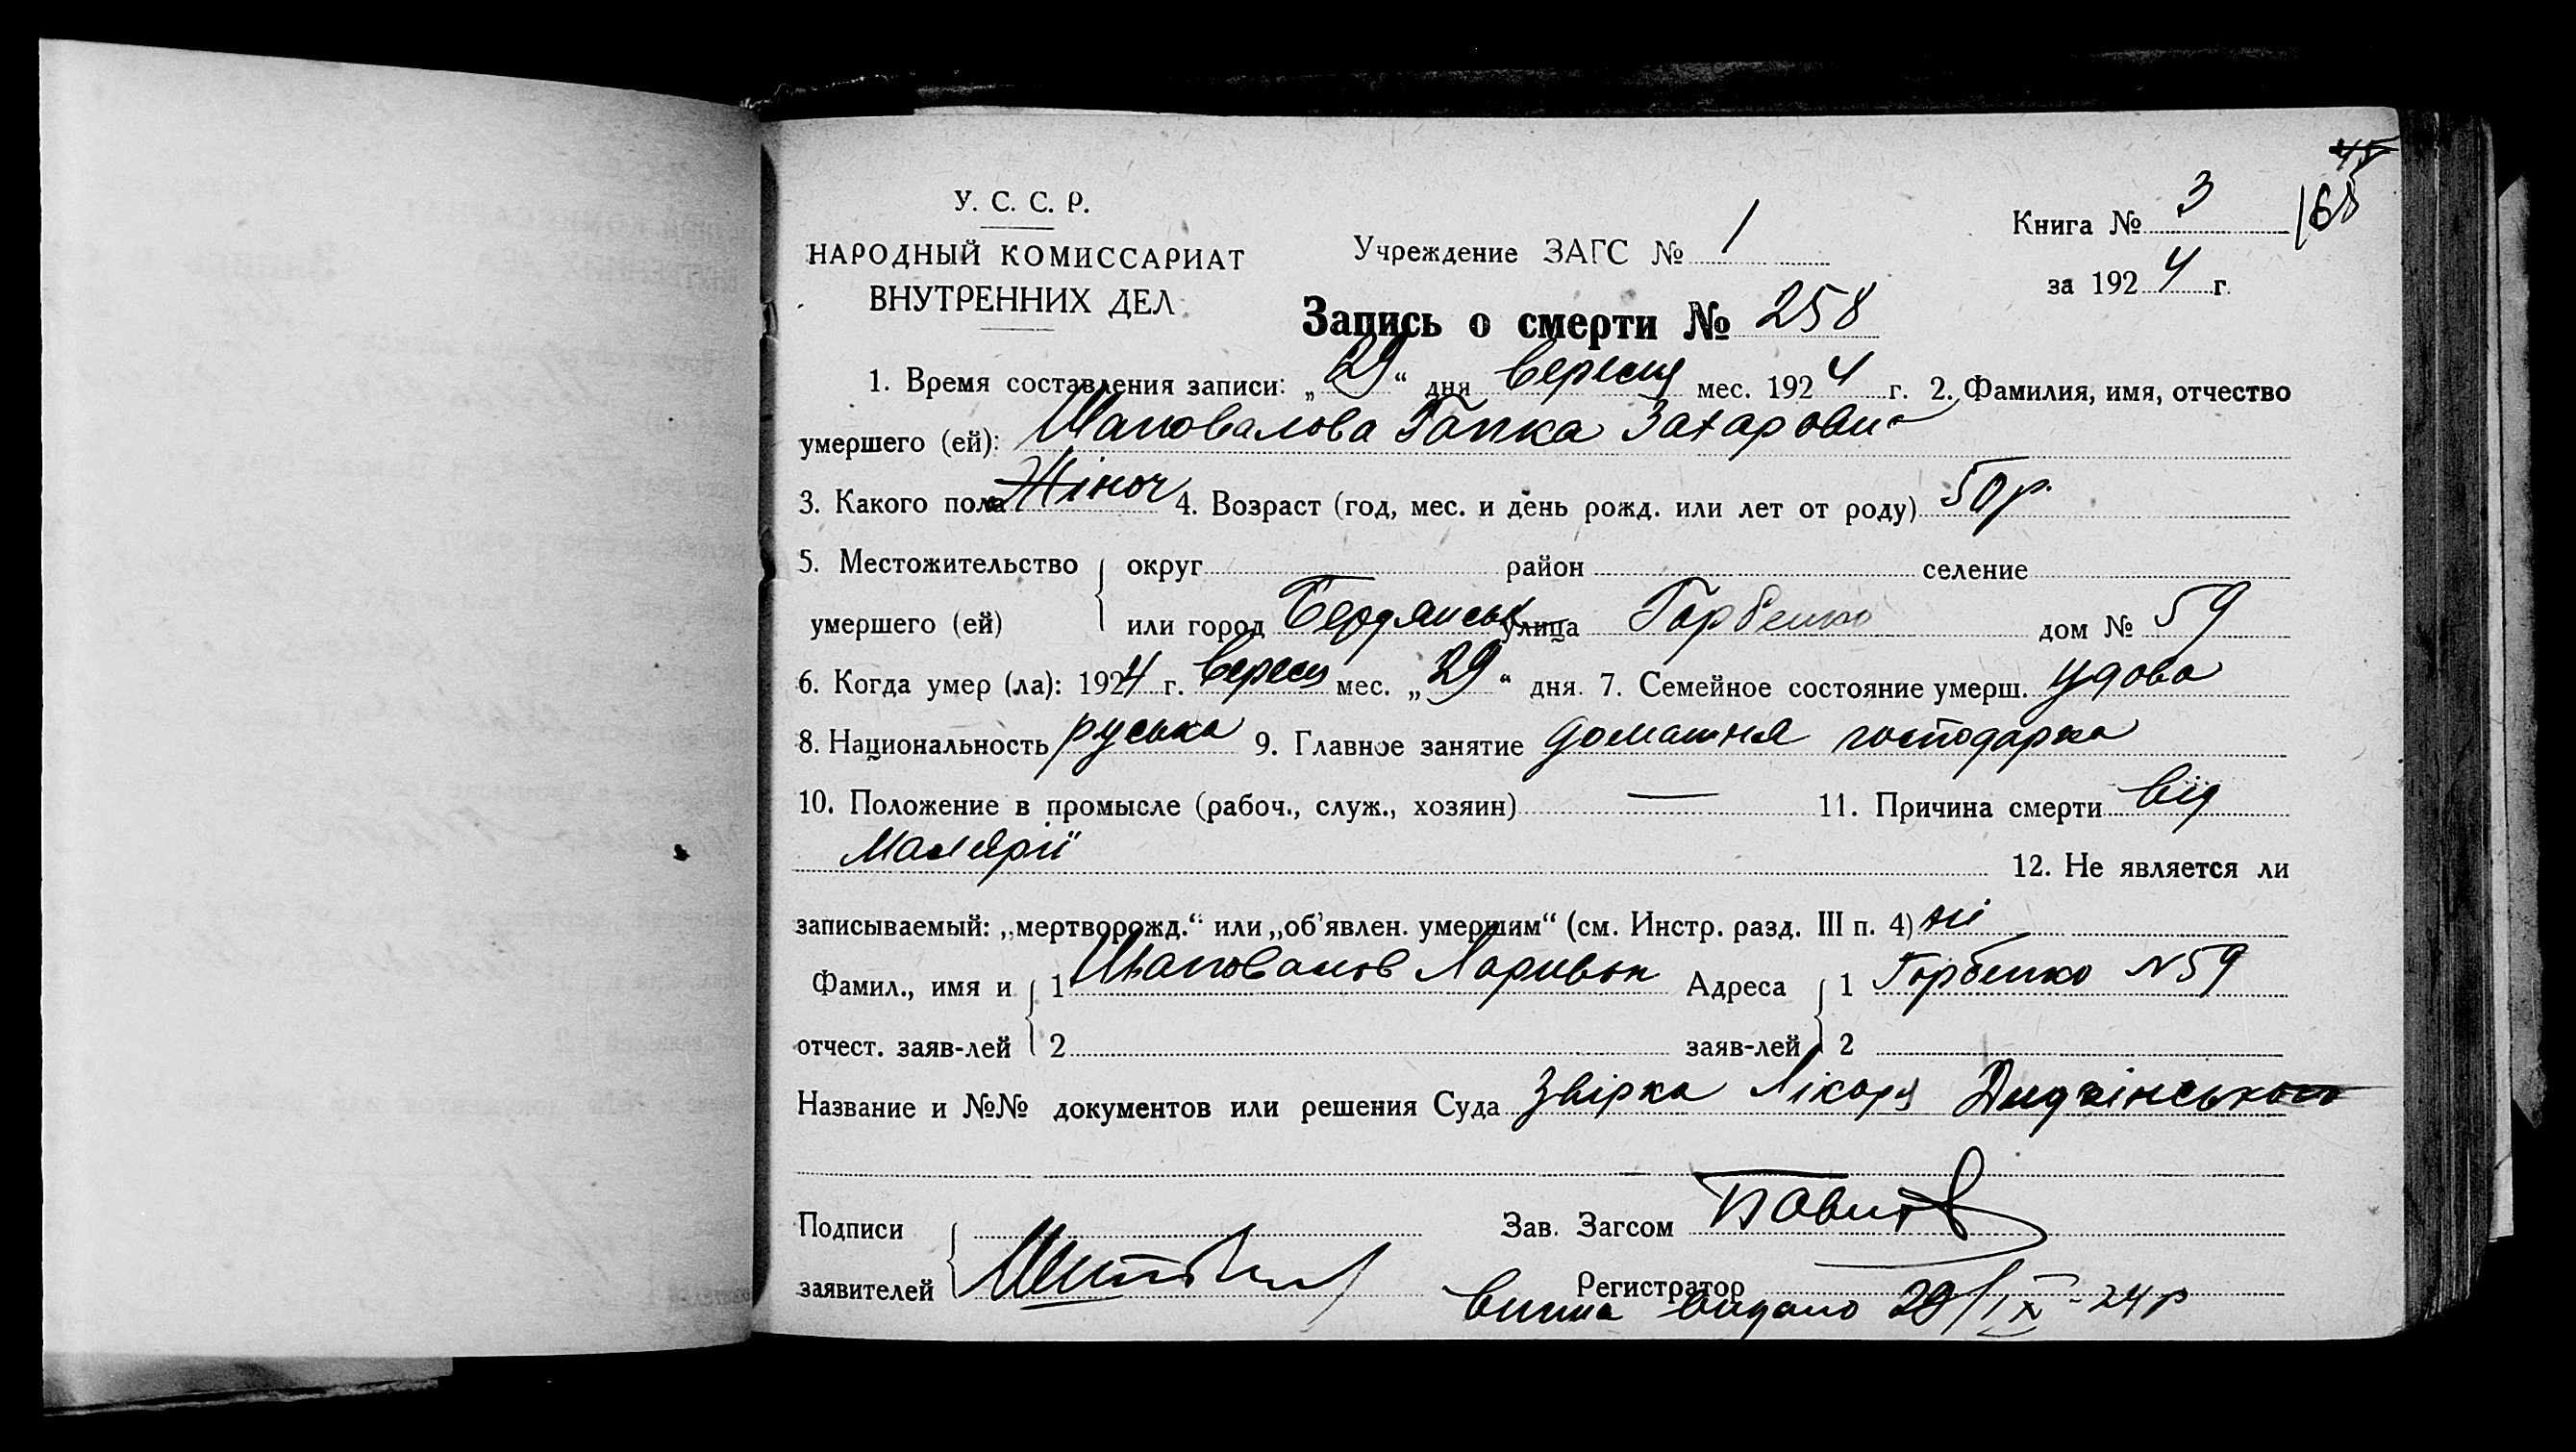 У. С. С. Р.
НАРОДНЫЙ КОМИССАРИАТ
ВНУТРЕННИХ ДЕЛ
Учреждение ЗАГС № 1
Книга № 3
165
за 1924 г.
Запись о смерти № 258
1. Время составления записи: „29“ дня вересня мес. 1924 г. 2. Фамилия, имя, отчество
умершего (ей): Шаповалова Гапка Захаровна
3. Какого пола Жіноч 4. Возраст (год, мес. и день рожд. или лет от роду) 50 р.
5. Местожительство округ район селение
умершего (ей) или город Бердянськ улица Горбенко дом № 59
6. Когда умер (ла): 1924 г. вересн мес. „29“ дня. 7. Семейное состояние умерш. удова
8. Национальность руська 9. Главное занятие домашня господарка
10. Положение в промысле (рабоч., служ., хозяин) — 11. Причина смерти від
Малярії
12. Не является ли
записываемый: „мертворожд.“ или „об’явлен. умершим“ (см. Инстр. разд. III п. 4) ні
Фамил., имя и 1 Шаповалов Ларивон Адреса 1 Горбенко №59
отчест. заяв-лей 2 заяв-лей 2
Название и №№ документов или решения Суда Звірка Лікаря
Подписи Зав. Загсом
заявителей Регистратор
видано 29/IX-24 р